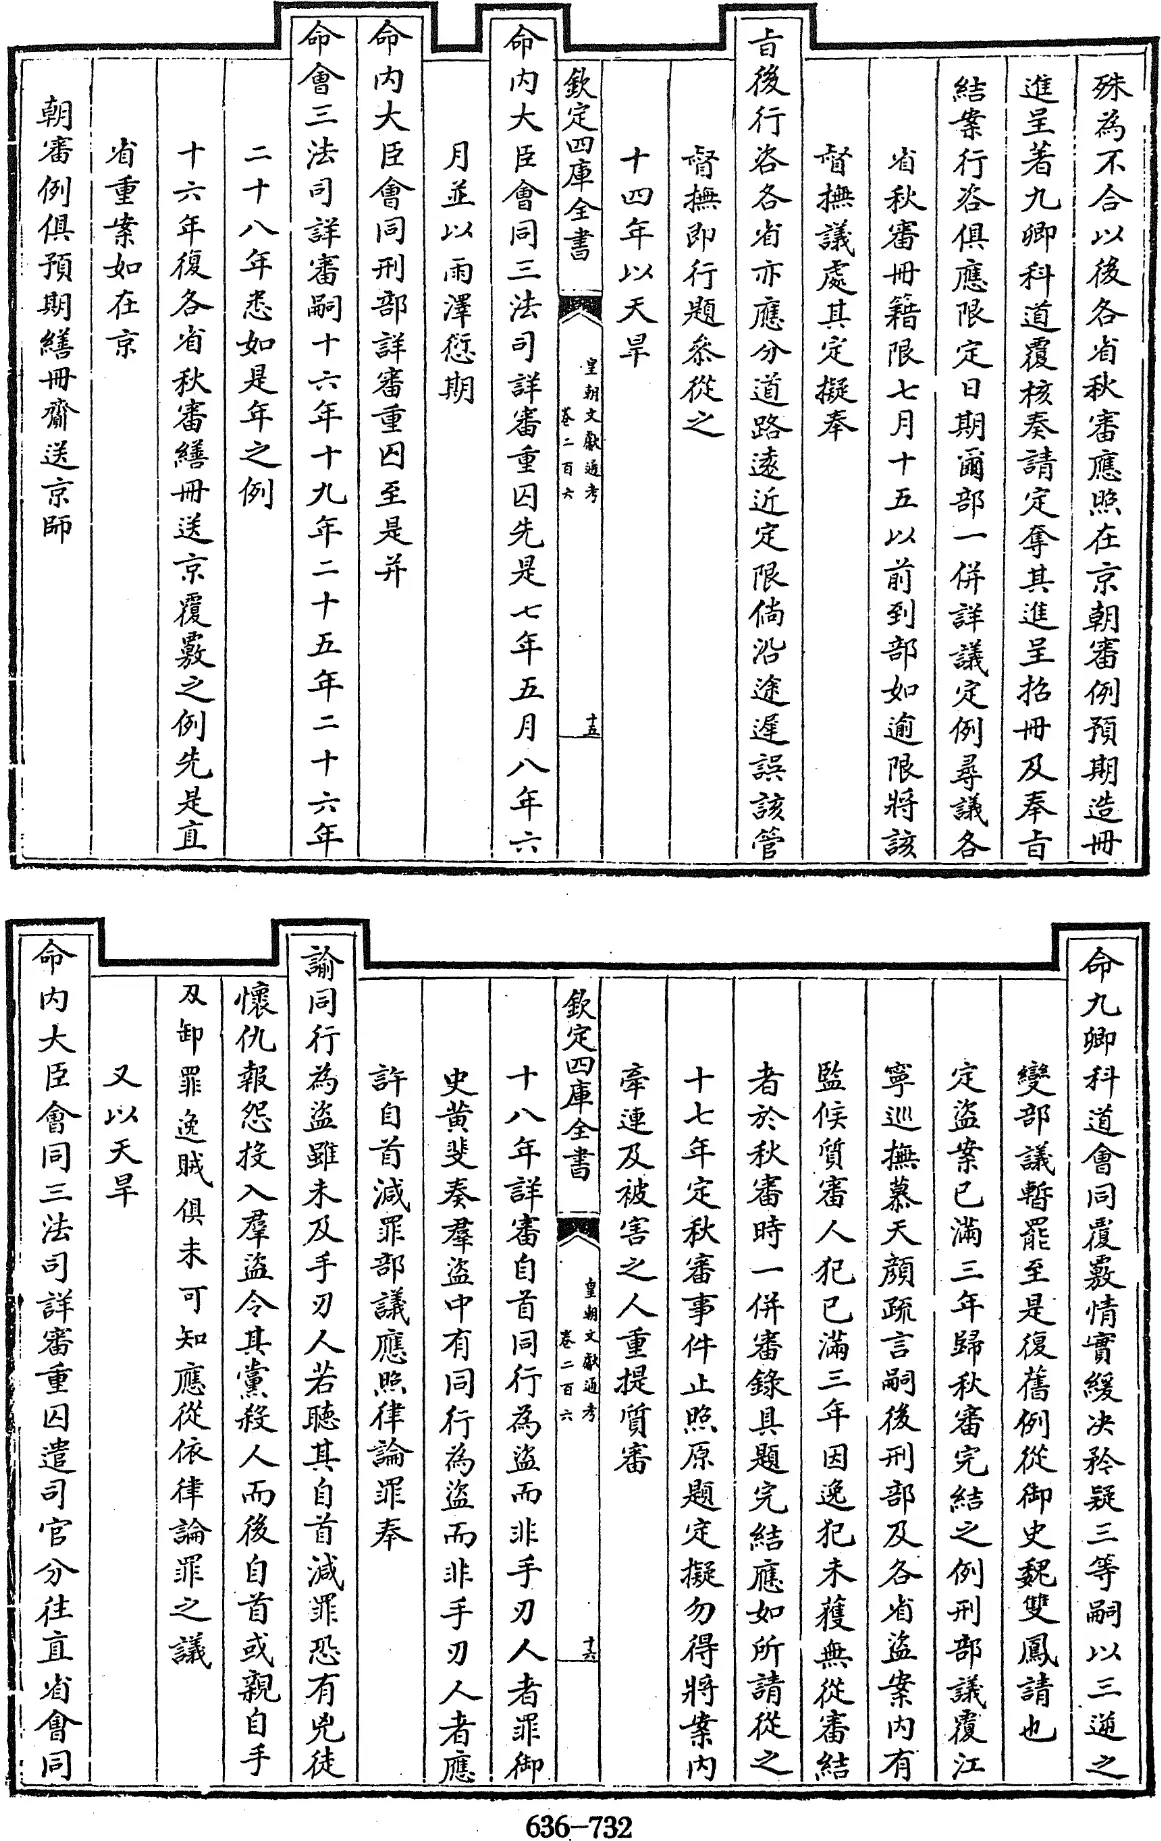 殊為不合以後各省秋審應照在京朝審例預期造冊
進呈著九卿科道覆核奏請定奪其進呈招冊及奉㫖
結案行咨俱應限定日期爾部一併詳議定例尋議各
省秋審冊籍限七月十五以前到部如逾限將該
督撫議處其定擬奉
㫖後行咨各省亦應分道路遠近定限倘沿途遲誤該管
督撫即行題叅從之
十四年以天旱
欽定四庫全書
皇朝文獻通考
卷二百六
十五
命内大臣會同三法司詳審重囚先是七年五月八年六
月並以雨澤愆期
命内大臣會同刑部詳審重囚至是并
命會三法司詳審嗣十六年十九年二十五年二十六年
二十八年悉如是年之例
十六年復各省秋審繕冊送京覆覈之例先是直
省重案如在京
朝審例俱預期繕冊齎送京師
命九卿科道會同覆覈情實緩决矜疑三等嗣以三逆之
變部議暫罷至是復舊例從御史魏雙鳳請也
定盜案已滿三年歸秋審完結之例刑部議覆江
寧巡撫慕天顔疏言嗣後刑部及各省盜案内有
監候質審人犯已滿三年因逸犯未獲無從審結
者於秋審時一併審錄具題完結應如所請從之
十七年定秋審事件止照原題定擬勿得將案内
牽連及被害之人重提質審
欽定四庫全書
皇朝文獻通考
卷二百六
十六
十八年詳審自首同行為盜而非手刃人者罪御
史黄斐奏羣盜中有同行為盜而非手刃人者應
許自首減罪部議應照律論罪奉
諭同行為盜雖未及手刃人若聽其自首減罪恐有兇徒
懷仇報怨投入羣盜令其黨殺人而後自首或親自手
刄卸罪逸賊俱未可知應從依律論罪之議
又以天旱
命内大臣會同三法司詳審重囚遣司官分往直省會同
636-732